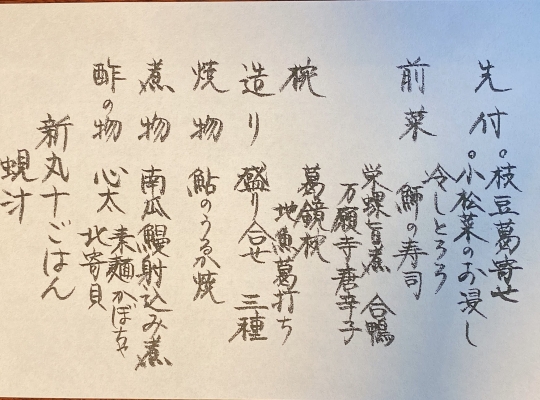 先付 。枝豆葛寄せ
。小松菜のお浸し
冷しとろろ
前菜 鰤の寿司
栄螺旨煮 合鴨
万願寺唐辛子
椀 葛鏡椀
地魚葛打ち
造り 盛り合せ 三種
焼物 鮎のうるか焼
煮物 南瓜鰻射込み煮
酢の物 心太 素麺かぼちゃ
北寄貝
新丸十ごはん
蜆汁